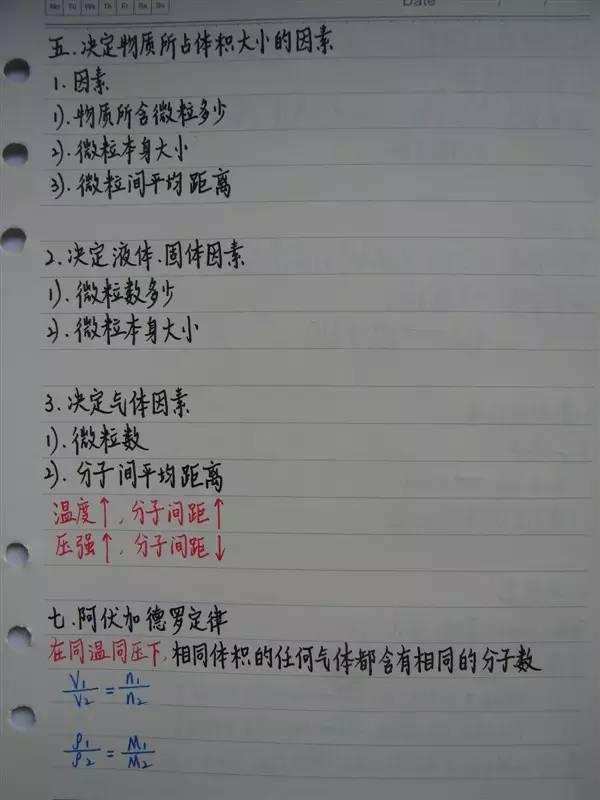 No Tu We Th Fr Sa Su
Date / /
五.决定物质所占体积大小的因素
1.因素
1).物质所含微粒多少
2).微粒本身大小
3).微粒间平均距离
2.决定液体.固体因素
1).微粒数多少
2).微粒本身大小
3.决定气体因素
1).微粒数
2).分子间平均距离
温度↑,分子间距↑
压强↑,分子间距↓
七.阿伏加德罗定律
在同温同压下,相同体积的任何气体都含有相同的分子数
V₁/V₂=n₁/n₂
ρ₁/ρ₂=M₁/M₂